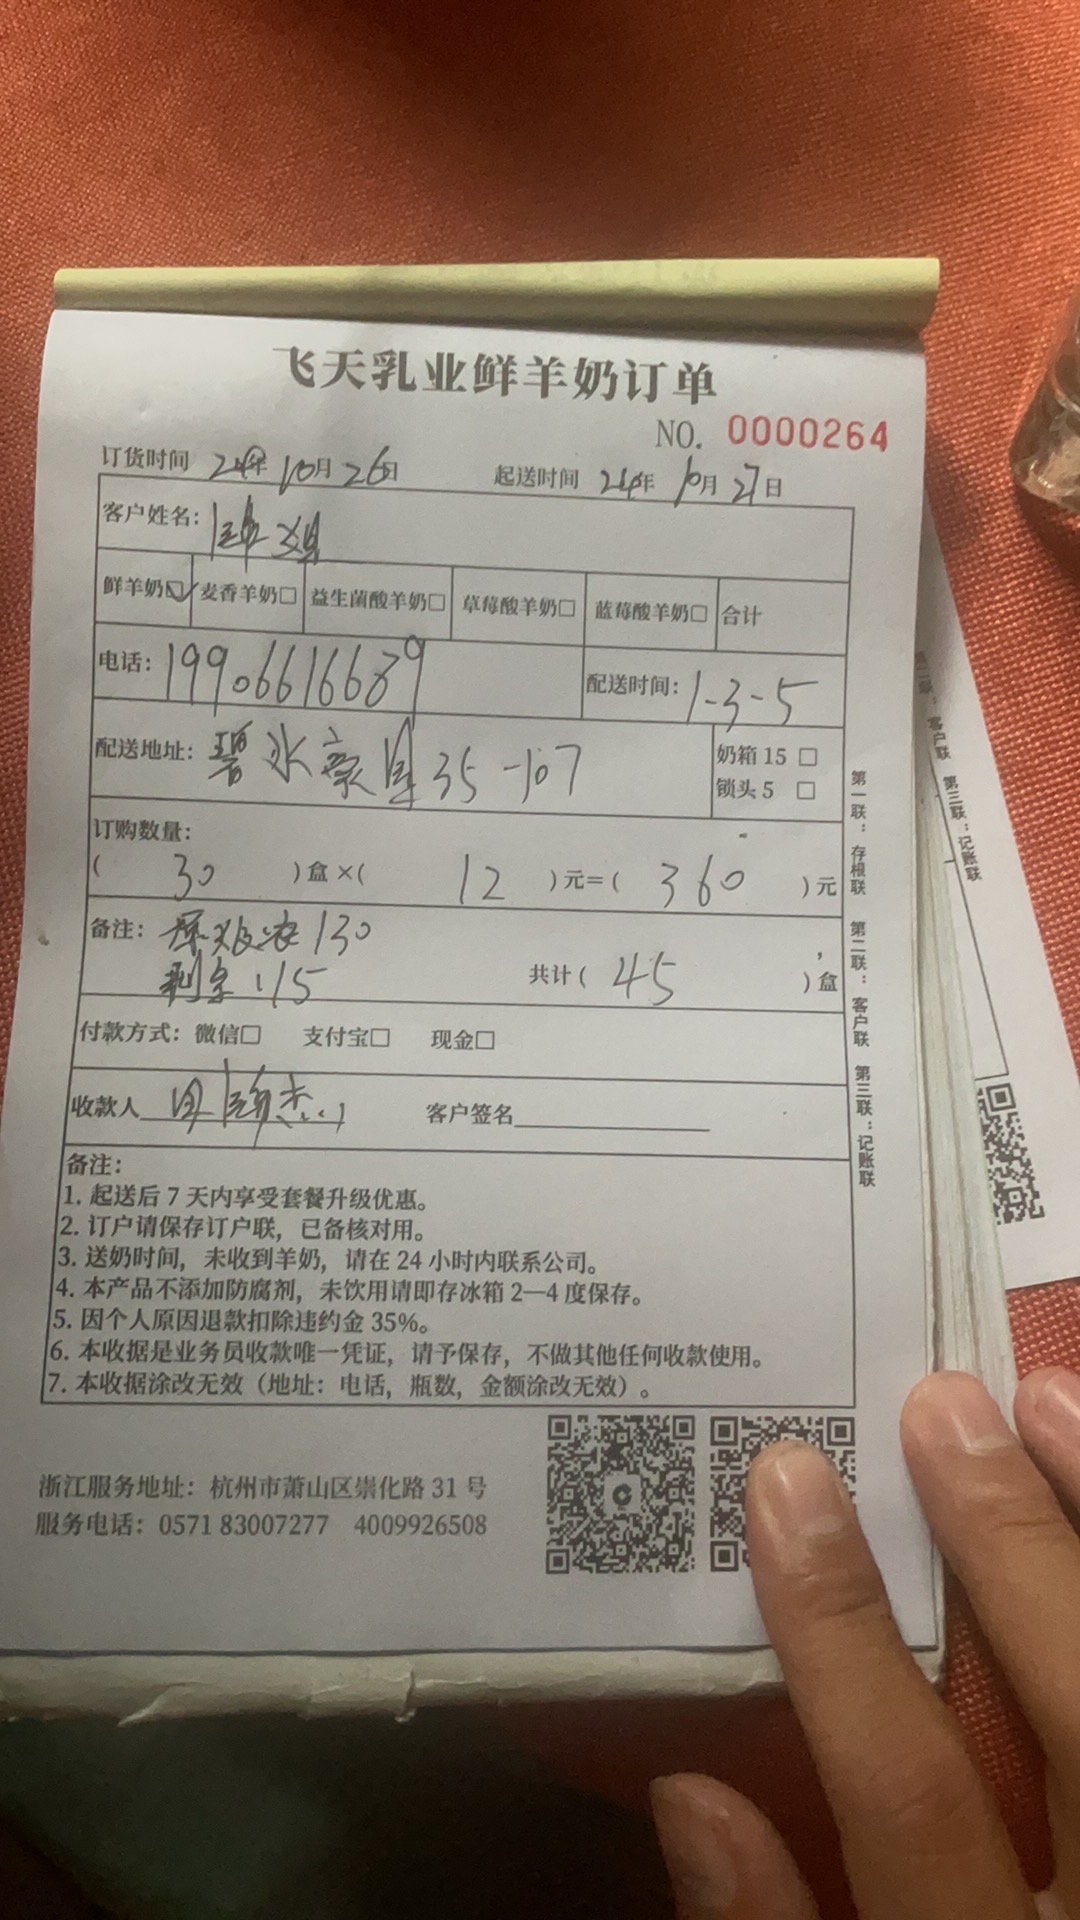 飞天乳业鲜羊奶订单
NO. 0000264
订货时间 24年 10月 26日 起送时间 24年 10月 27日
客户姓名：
鲜羊奶☑ 麦香羊奶□ 益生菌酸羊奶□ 草莓酸羊奶□ 蓝莓酸羊奶□ 合计
电话：19906616689 配送时间：1-3-5
配送地址：碧水豪园35-107
奶箱 15 □
锁头 5 □
订购数量：
( 30 ) 盒 × ( 12 ) 元 = ( 360 ) 元
备注： 130
剩余：15 共计 ( 45 ) 盒
付款方式：微信□ 支付宝□ 现金□
收款人 客户签名
备注：
1. 起送后 7 天内享受套餐升级优惠。
2. 订户请保存订户联，已备核对用。
3. 送奶时间，未收到羊奶，请在 24 小时内联系公司。
4. 本产品不添加防腐剂，未饮用请即存冰箱 2—4 度保存。
5. 因个人原因退款扣除违约金 35%。
6. 本收据是业务员收款唯一凭证，请予保存，不做其他任何收款使用。
7. 本收据涂改无效（地址：电话，瓶数，金额涂改无效）。
第一联：存根联 第二联：客户联 第三联：记账联
浙江服务地址：杭州市萧山区崇化路 31 号
服务电话：0571 83007277 4009926508
客户联 第三联：记账联